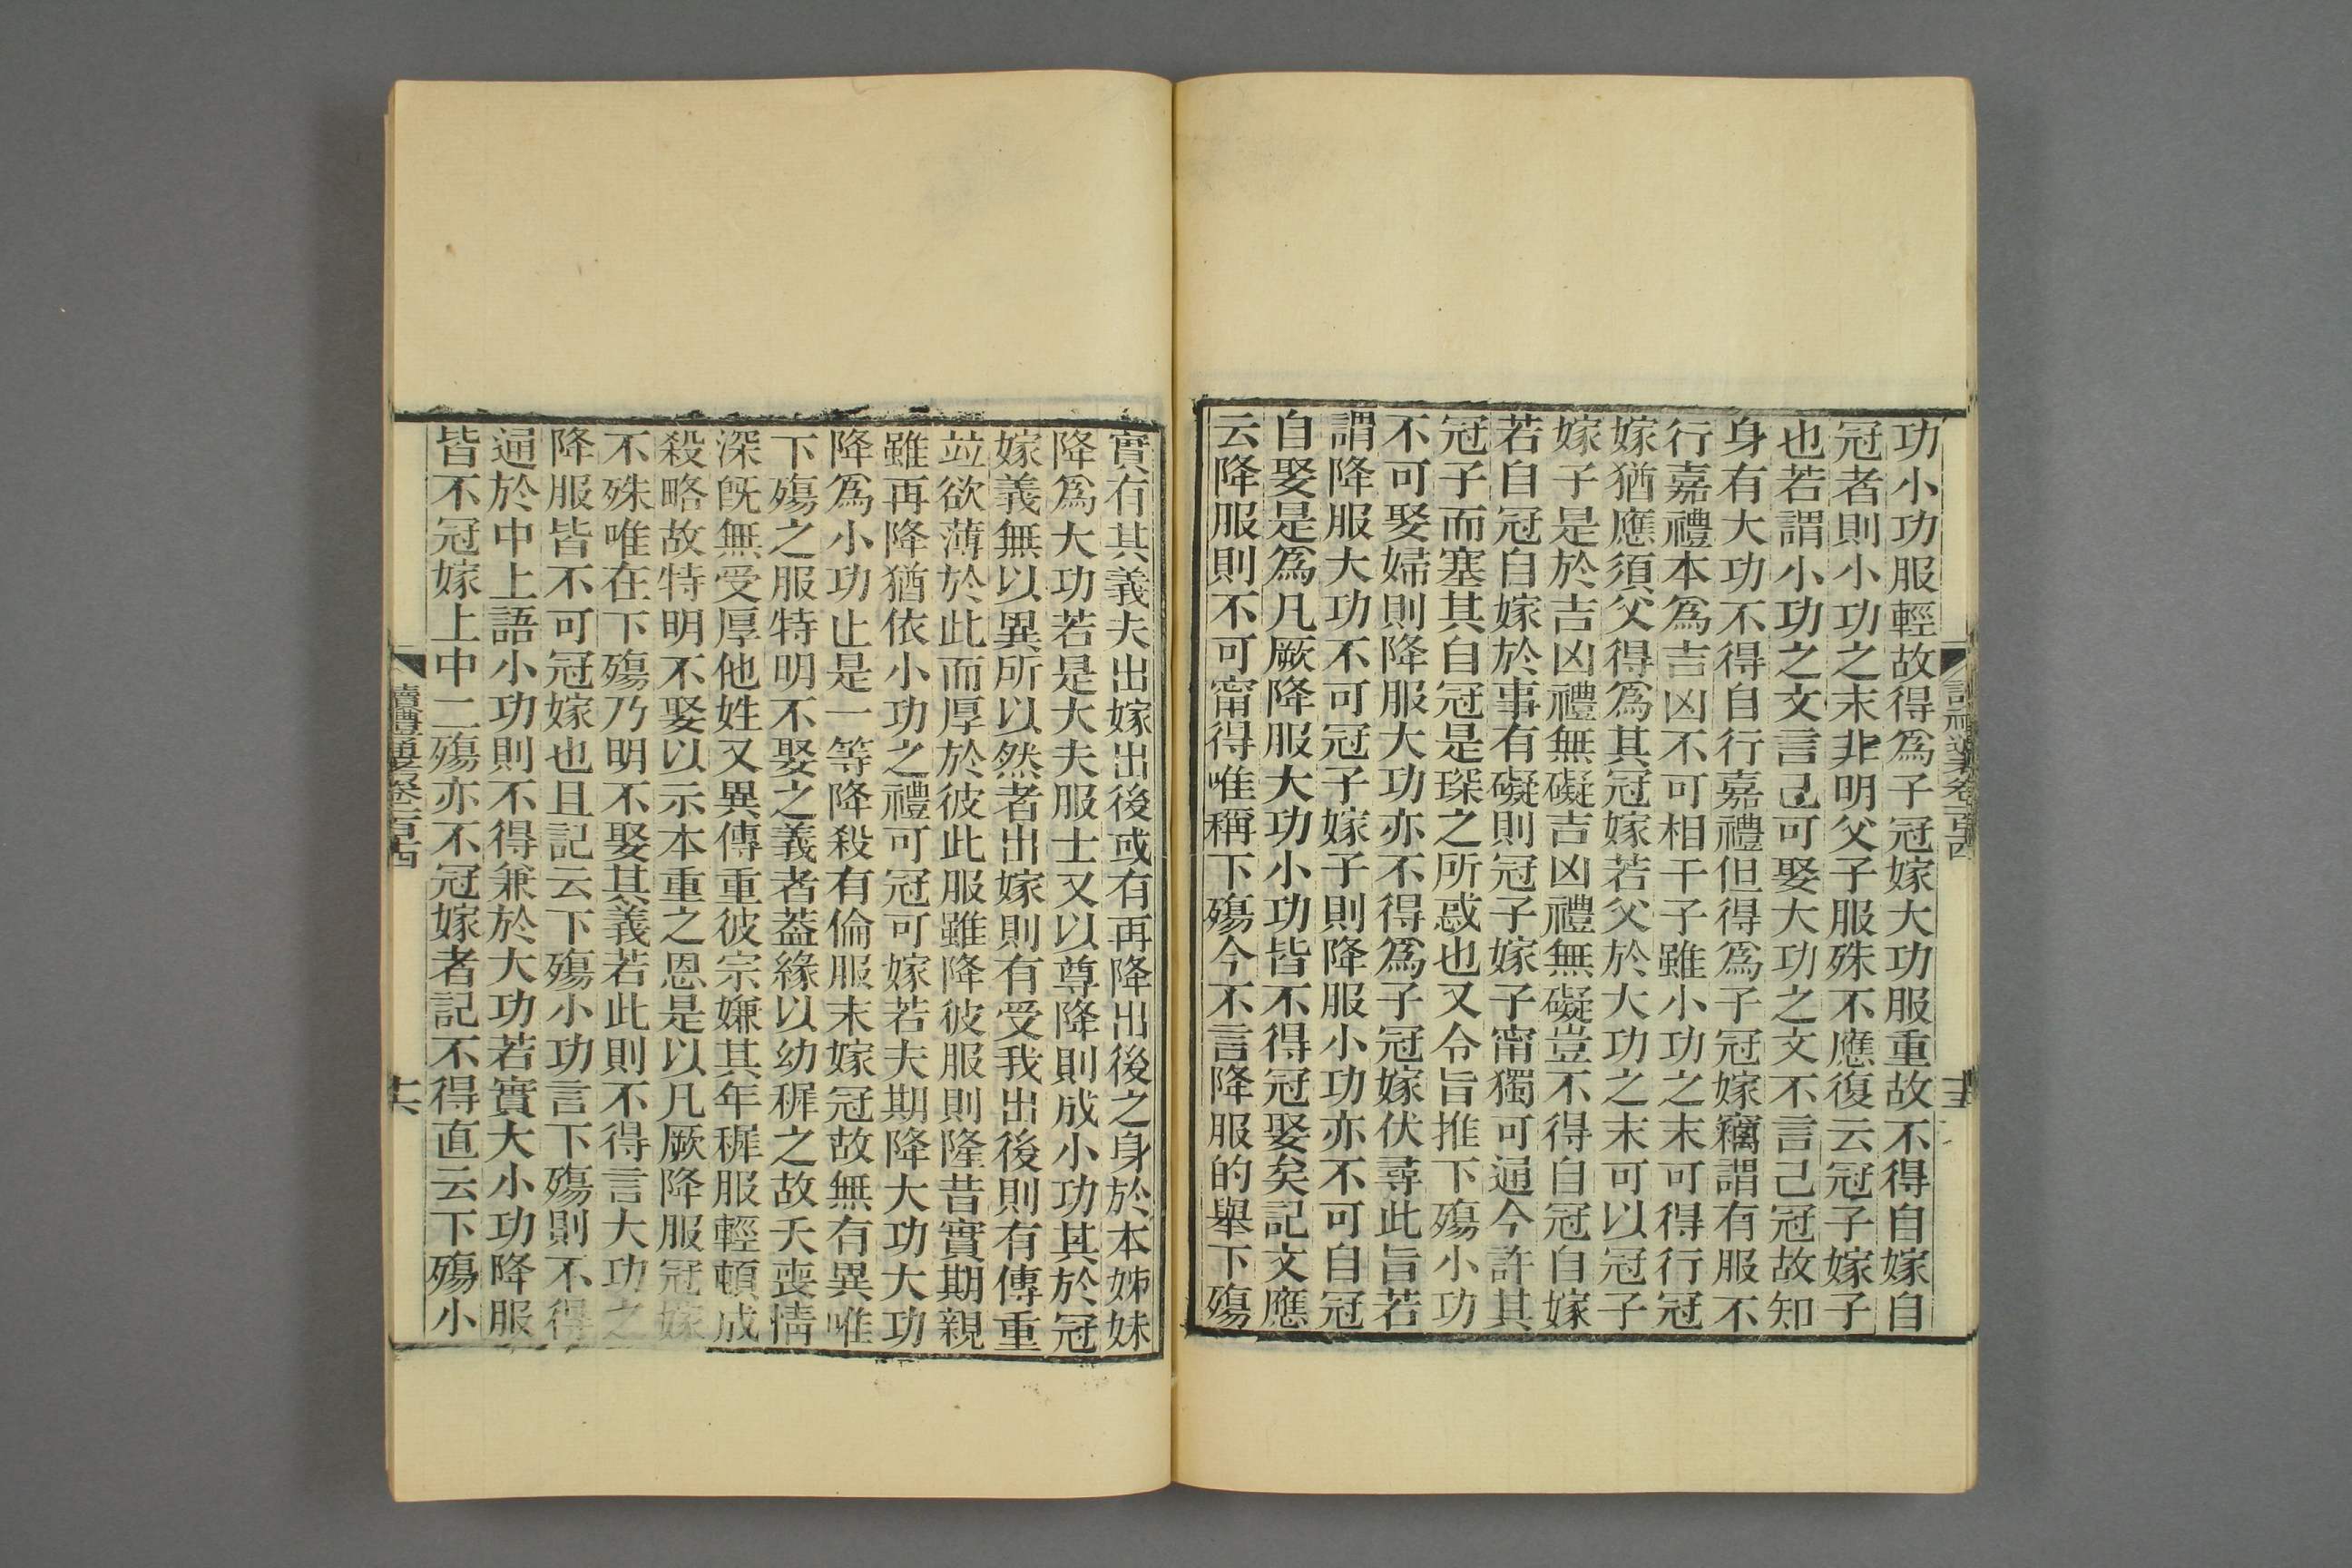 功小功服輕故得爲子冠嫁大功服重故不得自嫁自
冠者則小功之末非明父子服殊不應復云冠子嫁子
也若謂小功之文言己可娶大功之文不言己冠故知
身有大功不得自行嘉禮但得爲子冠嫁竊謂有服不
行嘉禮本爲吉凶不可相干子雖小功之末可得行冠
嫁猶應須父得爲其冠嫁若父於大功之末可以冠子
嫁子是於吉凶禮無礙吉凶禮無礙豈不得自冠自嫁
若自冠自嫁於事有礙則冠子嫁子甯獨可通今許其
冠子而塞其自冠是琛之所惑也又令旨推下殤小功
不可娶婦則降服大功亦不得爲子冠嫁伏尋此旨若
謂降服大功不可冠子嫁子則降服小功亦不可自冠
自娶是爲凡厥降服大功小功皆不得冠娶矣記文應
云降服則不可甯得唯稱下殤今不言降服的舉下殤
實有其義夫出嫁出後或有再降出後之身於本姊妹
降爲大功若是大夫服士又以尊降則成小功其於冠
嫁義無以異所以然者出嫁則有受我出後則有傳重
竝欲薄於此而厚於彼此服雖降彼服則隆昔實期親
雖再降猶依小功之禮可冠可嫁若夫期降大功大功
降爲小功止是一等降殺有倫服末嫁冠故無有異唯
下殤之服特明不娶之義者葢緣以幼稺之故夭喪情
深旣無受厚他姓又異傳重彼宗嫌其年稺服輕頓成
殺略故特明不娶以示本重之恩是以凡厥降服冠嫁
不殊唯在下殤乃明不娶其義若此則不得言大功之
降服皆不可冠嫁也且記云下殤小功言下殤則不得
通於中上語小功則不得兼於大功若實大小功降服
皆不冠嫁上中二殤亦不冠嫁者記不得直云下殤小
讀禮通考卷一百四
十六